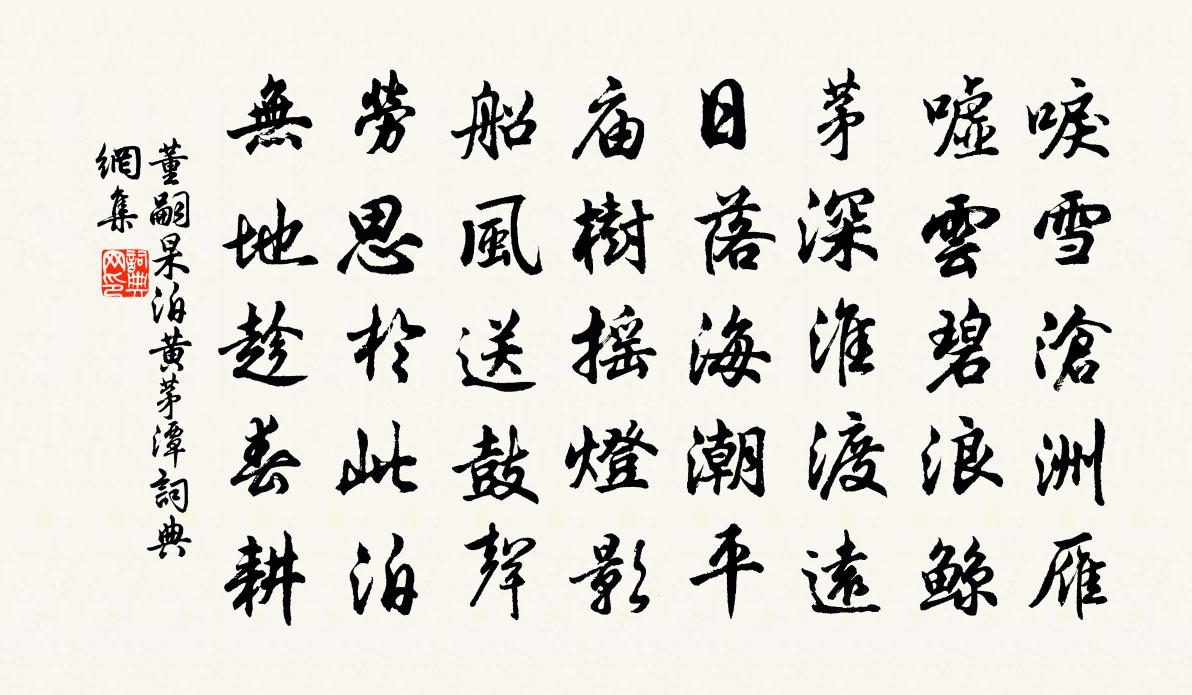 唳雪滄洲雁
嘘雲碧浪鲸
茅深淮渡遠
日落海潮平
庙樹摇燈影
船風送鼓聲
勞思於此泊
無地趁春耕
董嗣杲泊黄茅潭詞典
網集
詞典网印